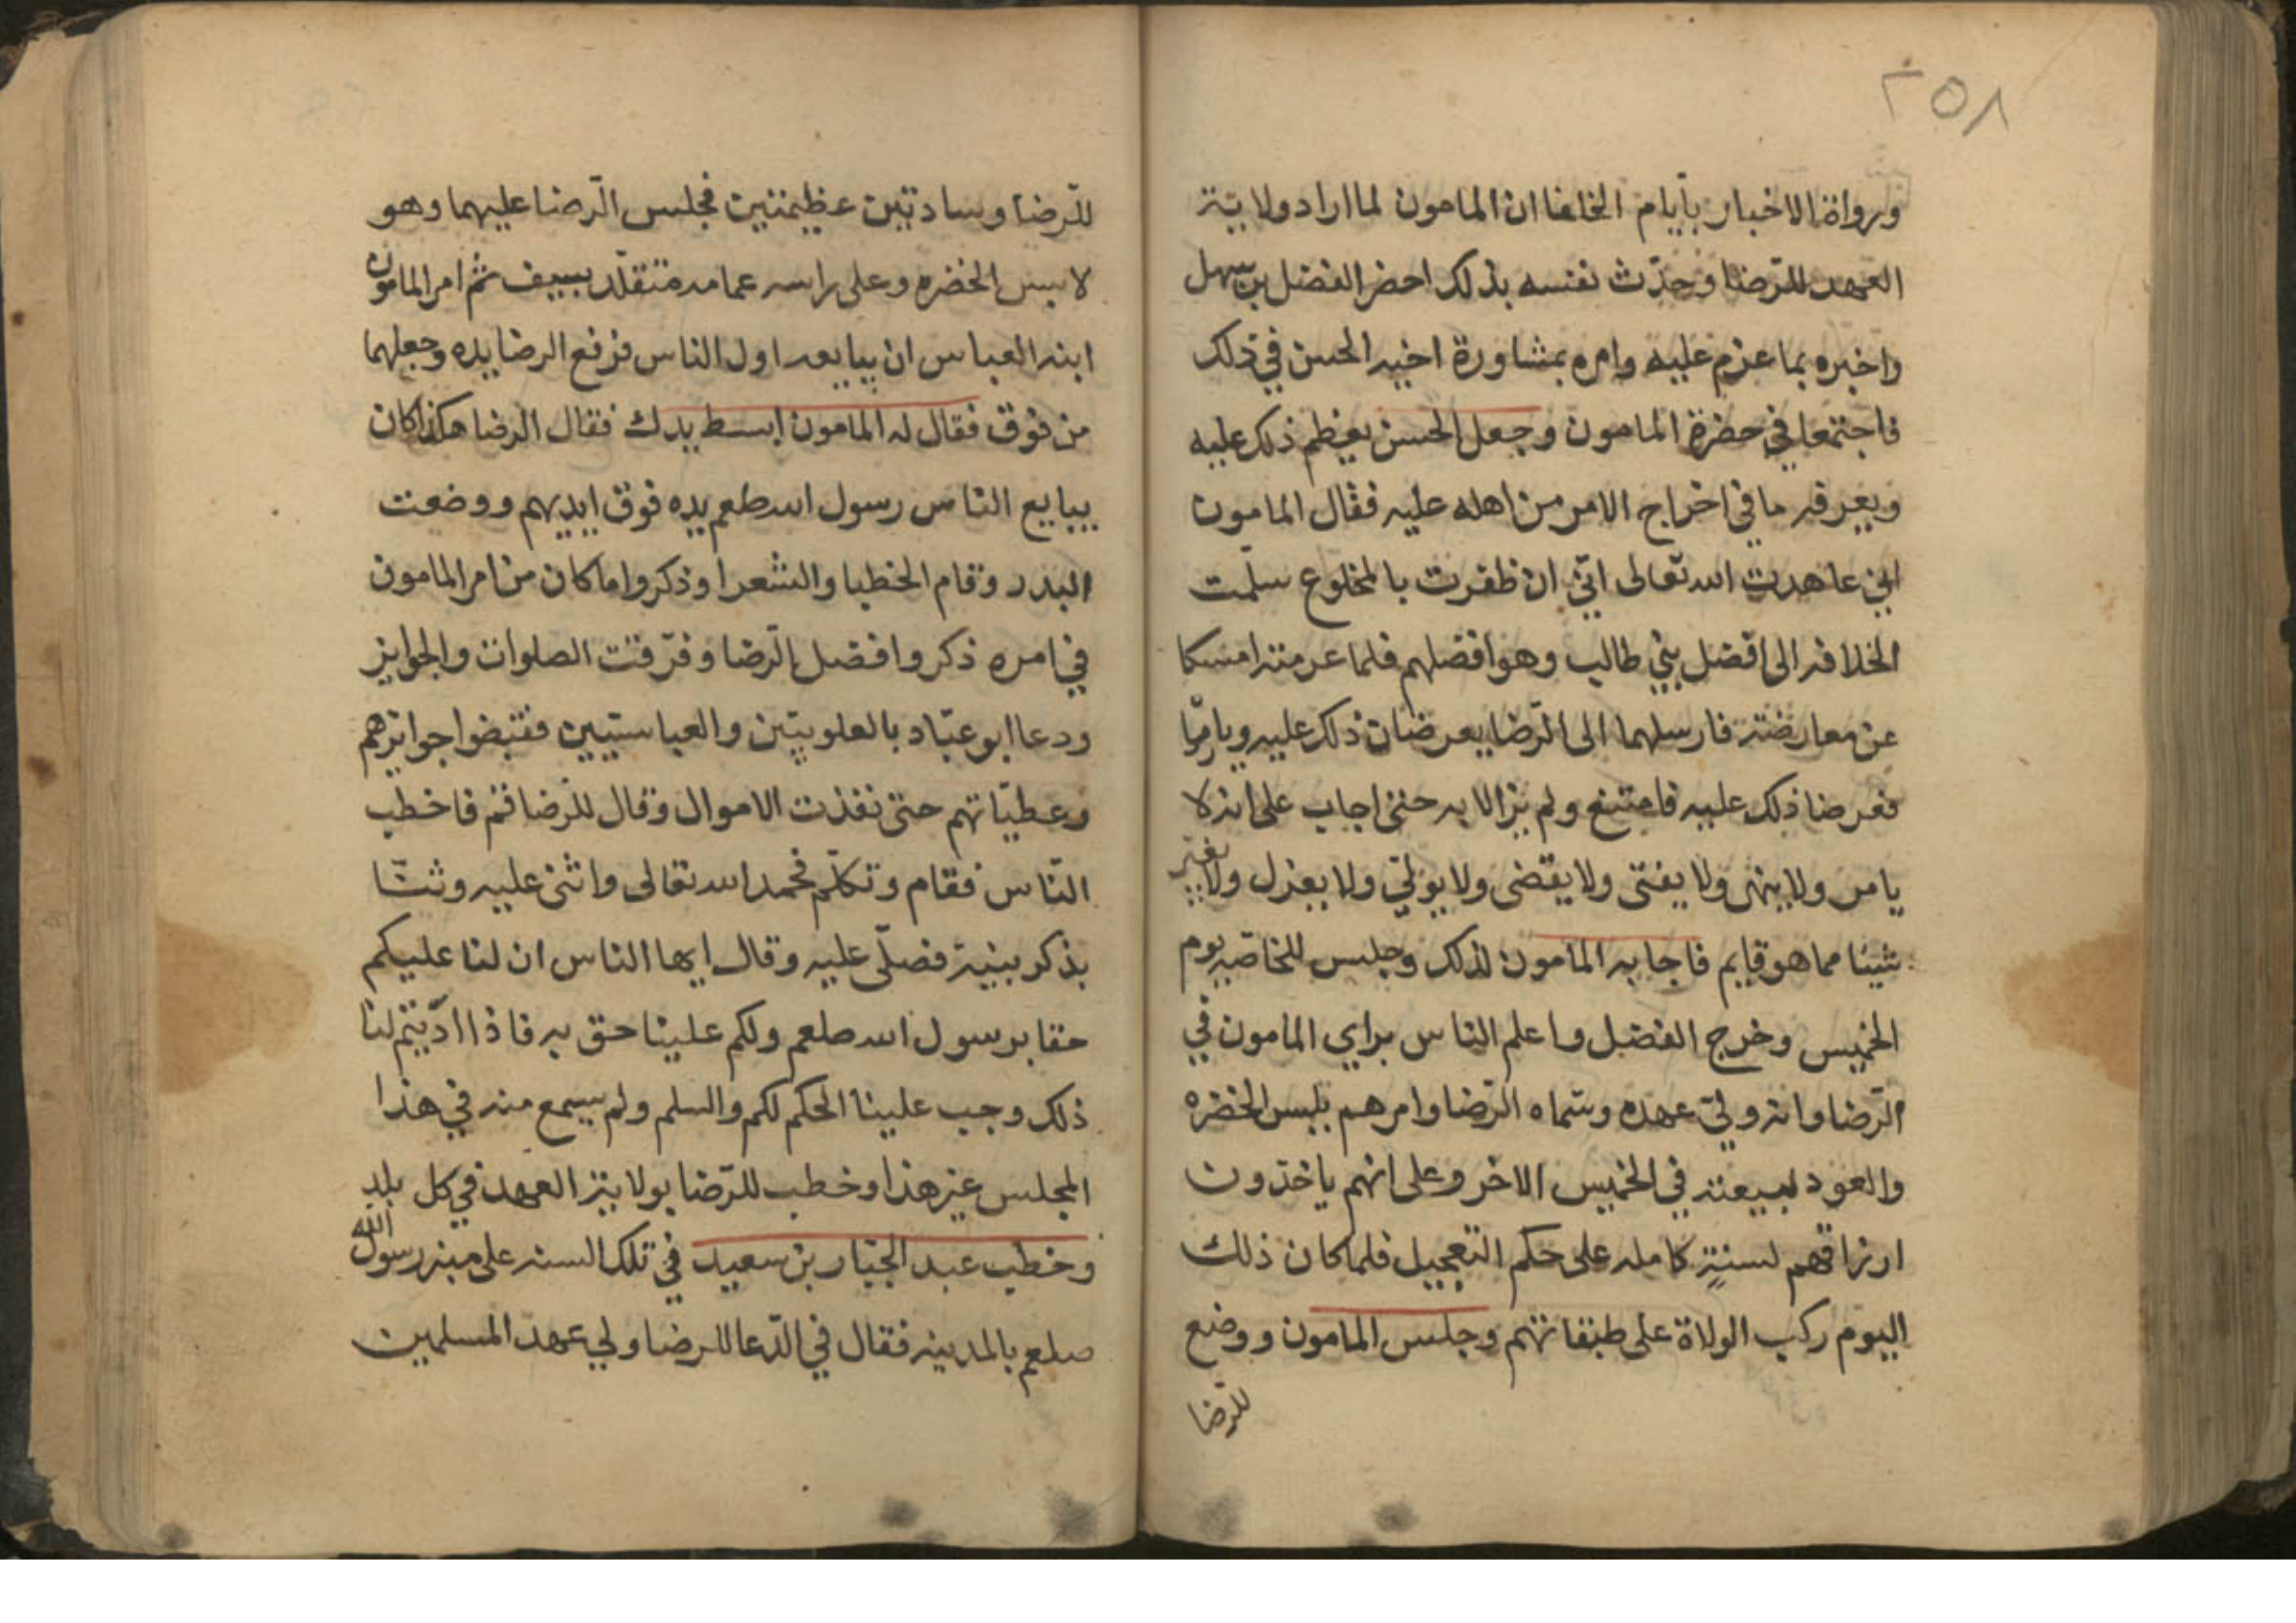 ٢٥٨
ورواة الاخبار بأيام الخلفا ان المامون لما اراد ولاية
العهد للرّضا وحدّث نفسه بذلك احضر الفضل بن سهل
واخبره بما عزم عليه وامره بمشاورة اخيه الحسن في ذلك
فاجتمعا في حضرة المامون وجعل الحسن يعظم ذلك عليه
ويعرفه ما في اخراج الامر من اهله عليه فقال المامون
اني عاهدت الله تعالى انّي ان ظفرت بالمخلوع سلّمت
الخلافه الى افضل بني طالب وهو افضلهم فلما عزمته امسكا
عن معارضته فارسلهما الى الرّضا يعرضان ذلك عليه ويامرا
فعرضا ذلك عليه فامتنع ولم يزالا به حتى اجاب على انه لا
يامر ولا ينهى ولا يفتى ولا يقضى ولا يولّي ولا يعزل ولا يغير
شيئا مما هو قايم فاجابه المامون لذلك وجلس للخاصّه يوم
الخميس وخرج الفضل واعلم الناس براي المامون في
الرّضا وانه وليّ عهده وسمّاه الرّضا وامرهم بلبس الخضره
والعود لبيعته في الخميس الاخر وعلى انهم ياخذون
ارزاقهم لسنةٍ كامله على حكم التعجيل فلما كان ذلك
اليوم ركب الولاة على طبقاتهم وجلس المامون ووضع
للرّضا
للرّضا وسادتين عظيمتين فجلس الرّضا عليهما وهو
لابس الخضره وعلى راسه عمامه متقلّد بسيف ثم امر المامون
ابنه العباس ان يبايعه اول الناس فرفع الرضا يده وجعلهما
من فوق فقال له المامون ابسط يدك فقال الرضا هكذا كان
يبايع الناس رسول الله صلعم يده فوق ايديهم ووضعت
البدر وقام الخطبا والشعرا وذكروا ما كان من امر المامون
في امره ذكروا فضل الرّضا وفرّقت الصلوات والجوايز
ودعا ابو عبّاد بالعلويّين والعباسيّين فقبضوا جوايزهم
وعطيّاتهم حتى نفذت الاموال وقال للرّضا قم فاخطب
النّاس فقام وتكلّم فحمد الله تعالى واثنى عليه وثنّا
بذكر نبيّه فصلّى عليه وقال ايها الناس ان لنا عليكم
حقا برسول الله صلعم ولكم علينا حق به فاذا ادّيتم لنا
ذلك وجب علينا الحكم لكم والسلم ولم يسمع منه في هذا
المجلس غير هذا وخطب للرّضا بولاية العهد في كل بلد
وخطب عبد الجبّار بن سعيد في تلك السنه على منبر رسول الله
صلعم بالمدينه فقال في الدّعا للرضا ولي عهد المسلمين